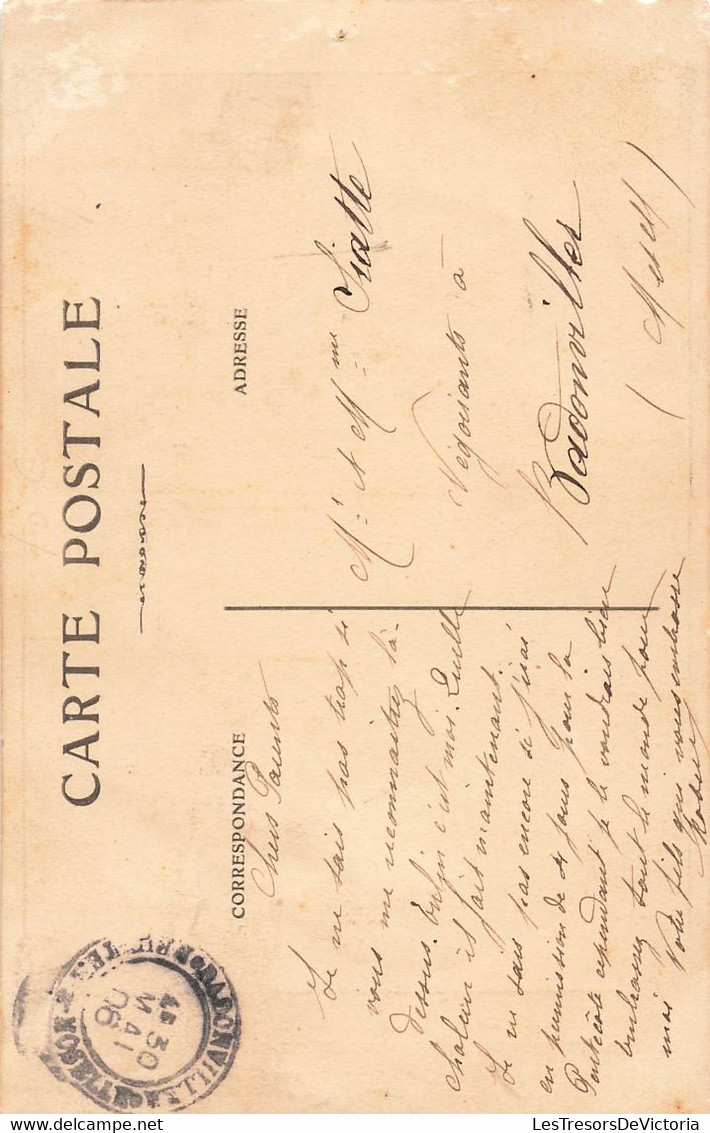 CARTE POSTALE
CORRESPONDANCE
Chers Parents
Je ne sais pas trop si
vous me reconnaitrez là-
dessus. Enfin c'est moi. Quelle
chaleur il fait maintenant.
Je ne sais pas encore si j'irai
en permission de 4 jours pour la
Pentecôte cependant je le voudrais bien
embrassez tout le monde pour
moi Votre fils qui vous embrasse
ADRESSE
Mr et Mme Siatte
Négociants à
Badonviller
(M et M)
BADONVILLER
30
MAI
06
LesTresorsDeVictoria.delcampe.net